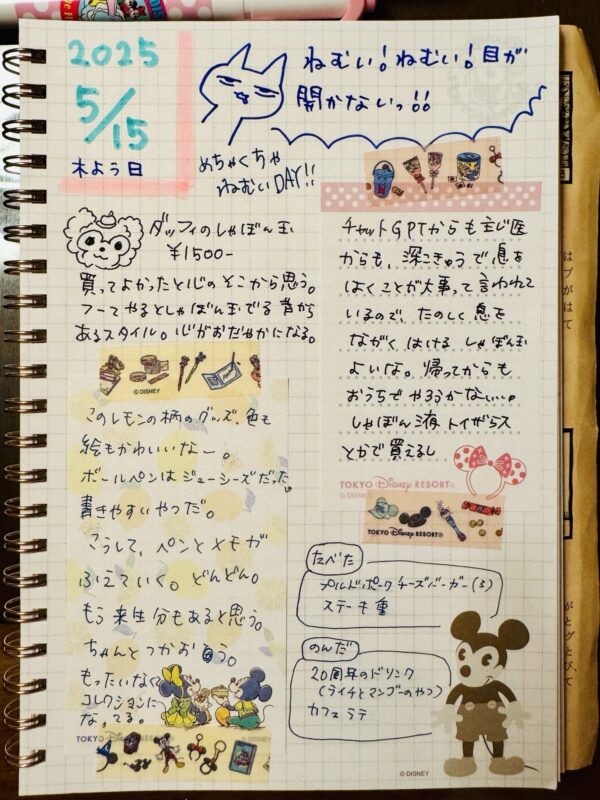 2025
5/15
木よう日
ねむい!ねむい!目が
開かないっ!!
めちゃくちゃ
ねむいDAY!!
ダッフィのしゃぼん玉
¥1500-
買ってよかったと心のそこから思う。
フーてやるとしゃぼん玉でる昔から
あるスタイル。心がおだやかになる。
© DISNEY
このレモンの柄のグッズ、色も
絵もかわいいなー。
ボールペンはジューシーズだった。
書きやすいやつだ。
こうして、ペンとメモが
ふえていく。どんどん。
もう来生分もあると思う。
ちゃんとつかおう。
もったいなくて
コレクションに
なってる。
TOKYO Disney RESORT
チャットGPTからも主じ医
からも、深こきゅうで息を
はくことが大事って言われて
いるので、たのしく息を
ながくはける しゃぼん玉
よいな。帰ってからも
おうちでやろうかないい。
しゃぼん液 トイザらス
とかで買えるし
TOKYO Disney RESORT®
© DISNEY
TOKYO Disney RESORT®
たべた
プルドポークチーズバーガー(3)
ステーキ重
のんだ
20周年のドリンク
(ライチとマンゴーのやつ)
カフェラテ
© DISNEY